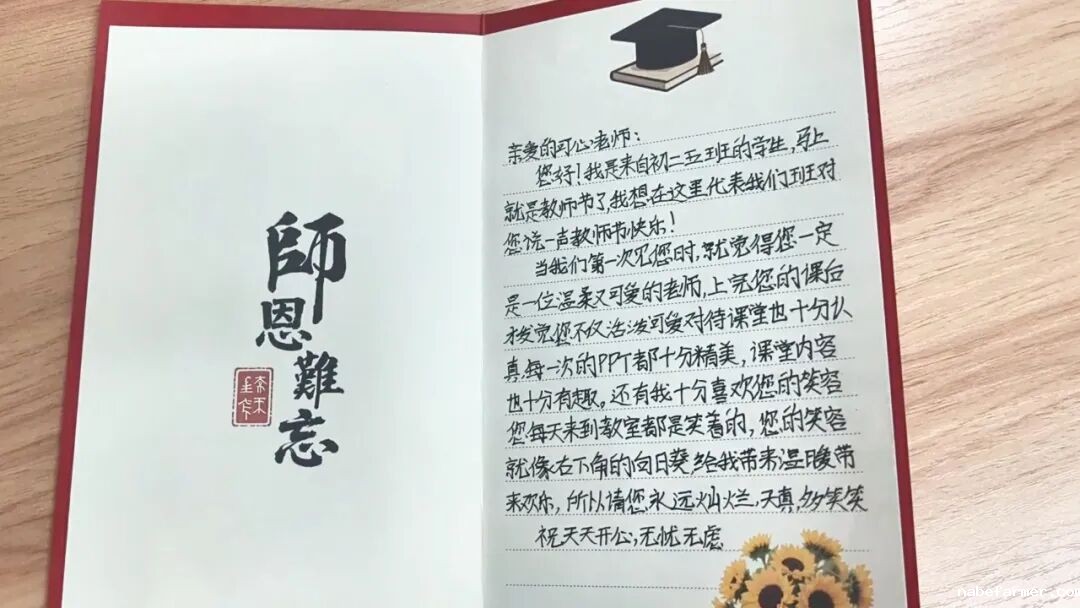 師
恩
難
忘
亲爱的可心老师:
您好!我是来自初二五班的学生,马上
就是教师节了,我想在这里代表我们班对
您说一声教师节快乐!
当我们第一次见您时,就觉得您一定
是一位温柔又可爱的老师,上完您的课后
才发觉您不仅活泼可爱对待课堂也十分认
真,每一次的PPT都十分精美,课堂内容
也十分有趣。还有我十分喜欢您的笑容
您每天来到教室都是笑着的,您的笑容
就像右下角的向日葵,给我带来温暖带
来欢乐,所以请您永远灿烂,天真,多笑笑
祝天天开心,无忧无虑
nabefarmer.com